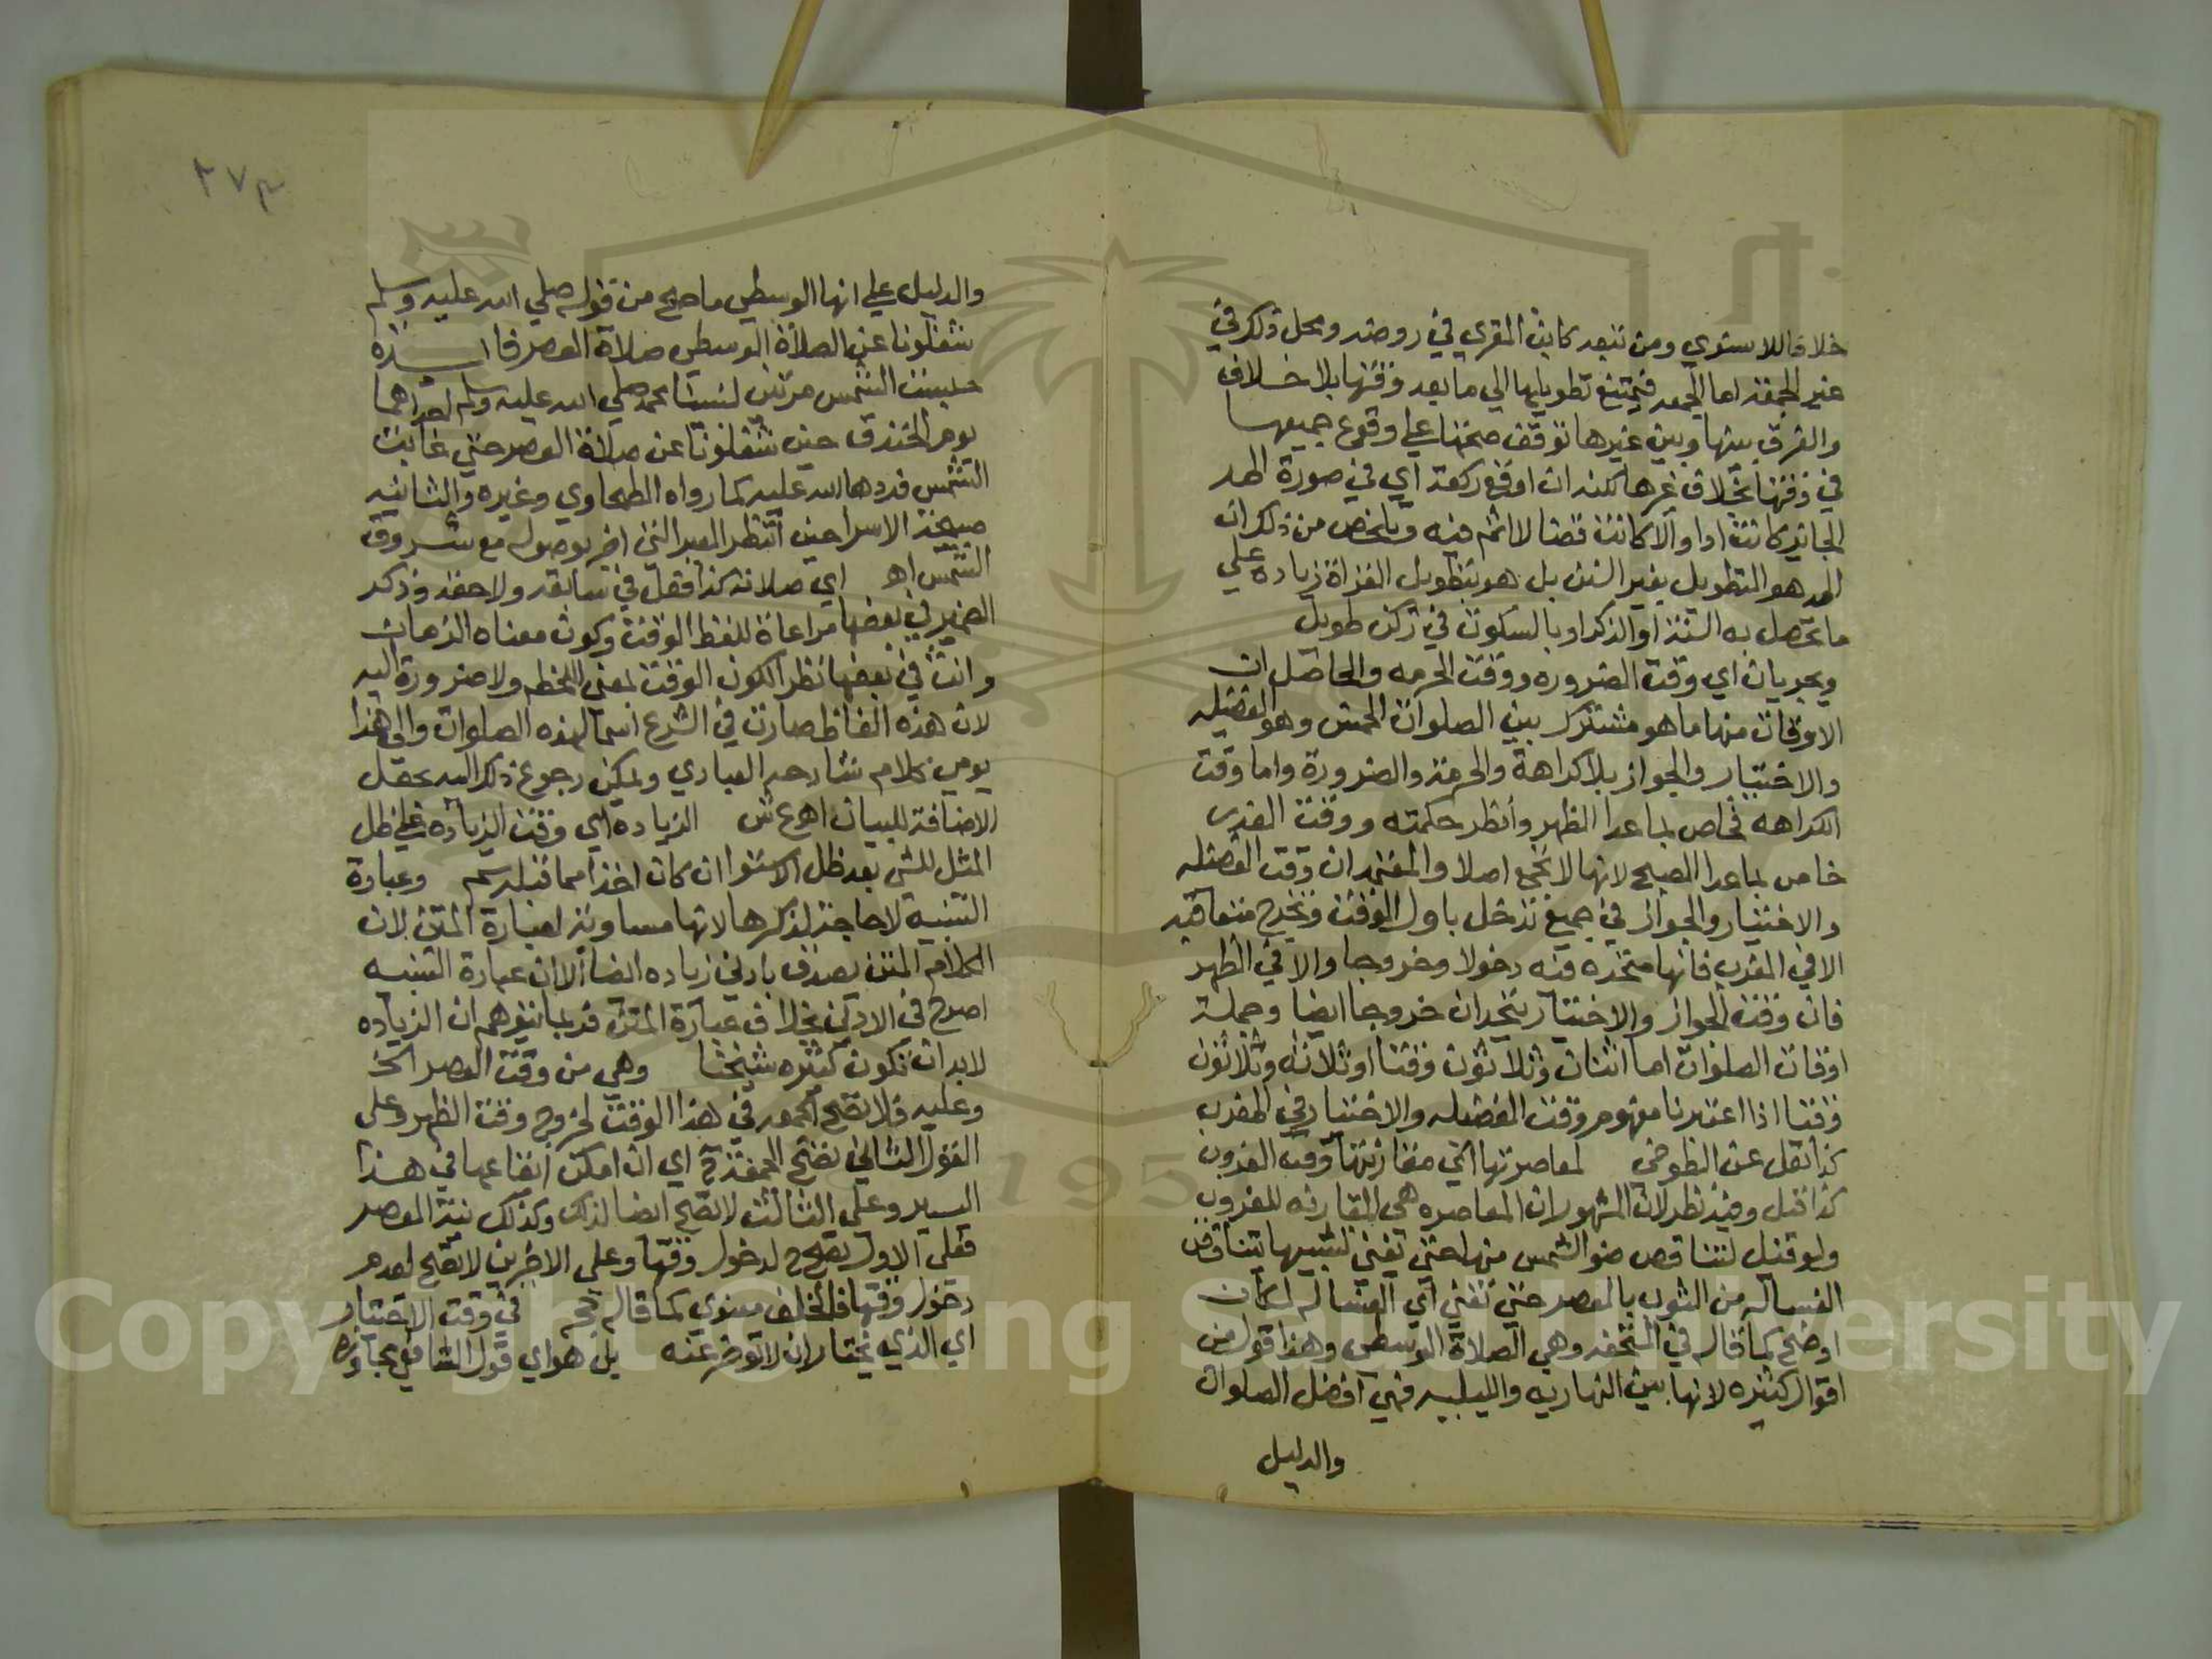 خلافا للاسنوي ومن تبعه كابن المقري في روضه ومحل ذلك في
غير الجمعة اما الجمعه فيمتنع تطويلها الي ما بعد وقتها بلا خلاف
والفرق بينها وبين غيرها توقف صحتها علي وقوع جميعها
في وقتها بخلاف غيرها لكنه ان اوقع ركعة اي في صورة المد
الجائز كانت ادا والا كانت قضا لا اثم فيه وتلخص من ذلك ان
المد هو التطويل بغير السنن بل هو بتطويل القراة زيادة علي
ما تحصل به السنة او الذكر او بالسكوت في ركن طويل
ويجريان اي وقت الضروره ووقت الحرمه والحاصل ان
الاوقات منها ما هو مشترك بين الصلوات الخمس وهو الفضيله
والاختيار والجواز بلا كراهة والحرمة والضرورة واما وقت
الكراهه فخاص بما عدا الظهر وانظر حكمته ووقت العذر
خاص بما عدا الصبح لانها لا تجمع اصلا والمعتمد ان وقت الفضيله
والاختيار والجواز في جميع تدخل باول الوقت وتخرج متعاقبه
الا في المغرب فانها متحده فيه دخولا وخروجا والا في الظهر
فان وقت الجواز والاختيار يتحدان خروجا ايضا وجملة
اوقات الصلوات اما اثنان وثلاثون وقتا او ثلاثة وثلاثون
وقتا اذا اعتبرنا مفهوم وقت الفضيله والاختيار في المغرب
كذا نقل عن الطوخي لمعاصرتها اي مقارنتها وقت الغروب
كذا قيل وفيه نظر لان المشهور ان المعاصره هي المقارنه للغروب
ولو قيل لتناقص ضو الشمس منها حتي تفني تشبيها بتناقص
الغسالة من الثوب بالعصر حتي تفني اي الغسالة لكان
اوضح كما قاله في التحفه وهي الصلاة الوسطي وهذا قول من
اقوال كثيره لانها بين النهاريه والليليه فهي افضل الصلوات
والدليل
٢٧٣
والدليل علي انها الوسطي ما صح من قوله صلي الله عليه وسلم
شغلونا عن الصلاة الوسطي صلاة العصر فائدة
حبست الشمس مرتين لنبينا محمد صلي الله عليه وسلم احداهما
يوم الخندق حين شغلونا عن صلاة العصر حتي غابت
الشمس فردها الله عليه كما رواه الطحاوي وغيره والثانيه
صبيحة الاسرا حين انتظر العير التي اخبر بوصولها مع شروق
الشمس اهـ اي صلاته كذا فعل في سابقه ولاحقه وذكر
الضمير في بعضها مراعاة للفظ الوقت وكون معناه الزمان
وانث في بعضها نظر الكون الوقت بمعني اللحظه ولا ضرورة اليه
لان هذه الفاظ صارت في الشرع اسما لهذه الصلوات والي هذا
يومي كلام شارحه العبادي ويمكن رجوع ذلك اليه بجعل
الاضافة للبيان اهـ ع ش الزياده اي وقت الزياده علي ظل
المثل للشي بعد ظل الاستوا ان كان اخذا مما قبله سم وعبارة
التنبيه لا حاجة لذكرها لانها مساوية لعبارة المتن لان
الكلام المتن يصدق بادني زياده ايضا الا ان عبارة التنبيه
اصرح في الادني بخلاف عبارة المتن فربما يتوهم ان الزياده
لا بد ان تكون كثيره شيخنا وهي من وقت العصر الخ
وعليه فلا تصح الجمعه في هذا الوقت لخروج وقت الظهر وعلي
القول الثاني تصح الجمعة فيه اي ان امكن ايقاعها في هذا
اليسير وعلي الثالث لا تصح ايضا لذلك وكذلك نية العصر
فعلي الاول تصح لدخول وقتها وعلي الاخرين لا تصح لعدم
دخول وقتها فالخلف معنوي كما قاله ججم في وقت الاختيار
اي الذي يختار ان لا توخر عنه بل هو اي قول الشافعي مجاوزة